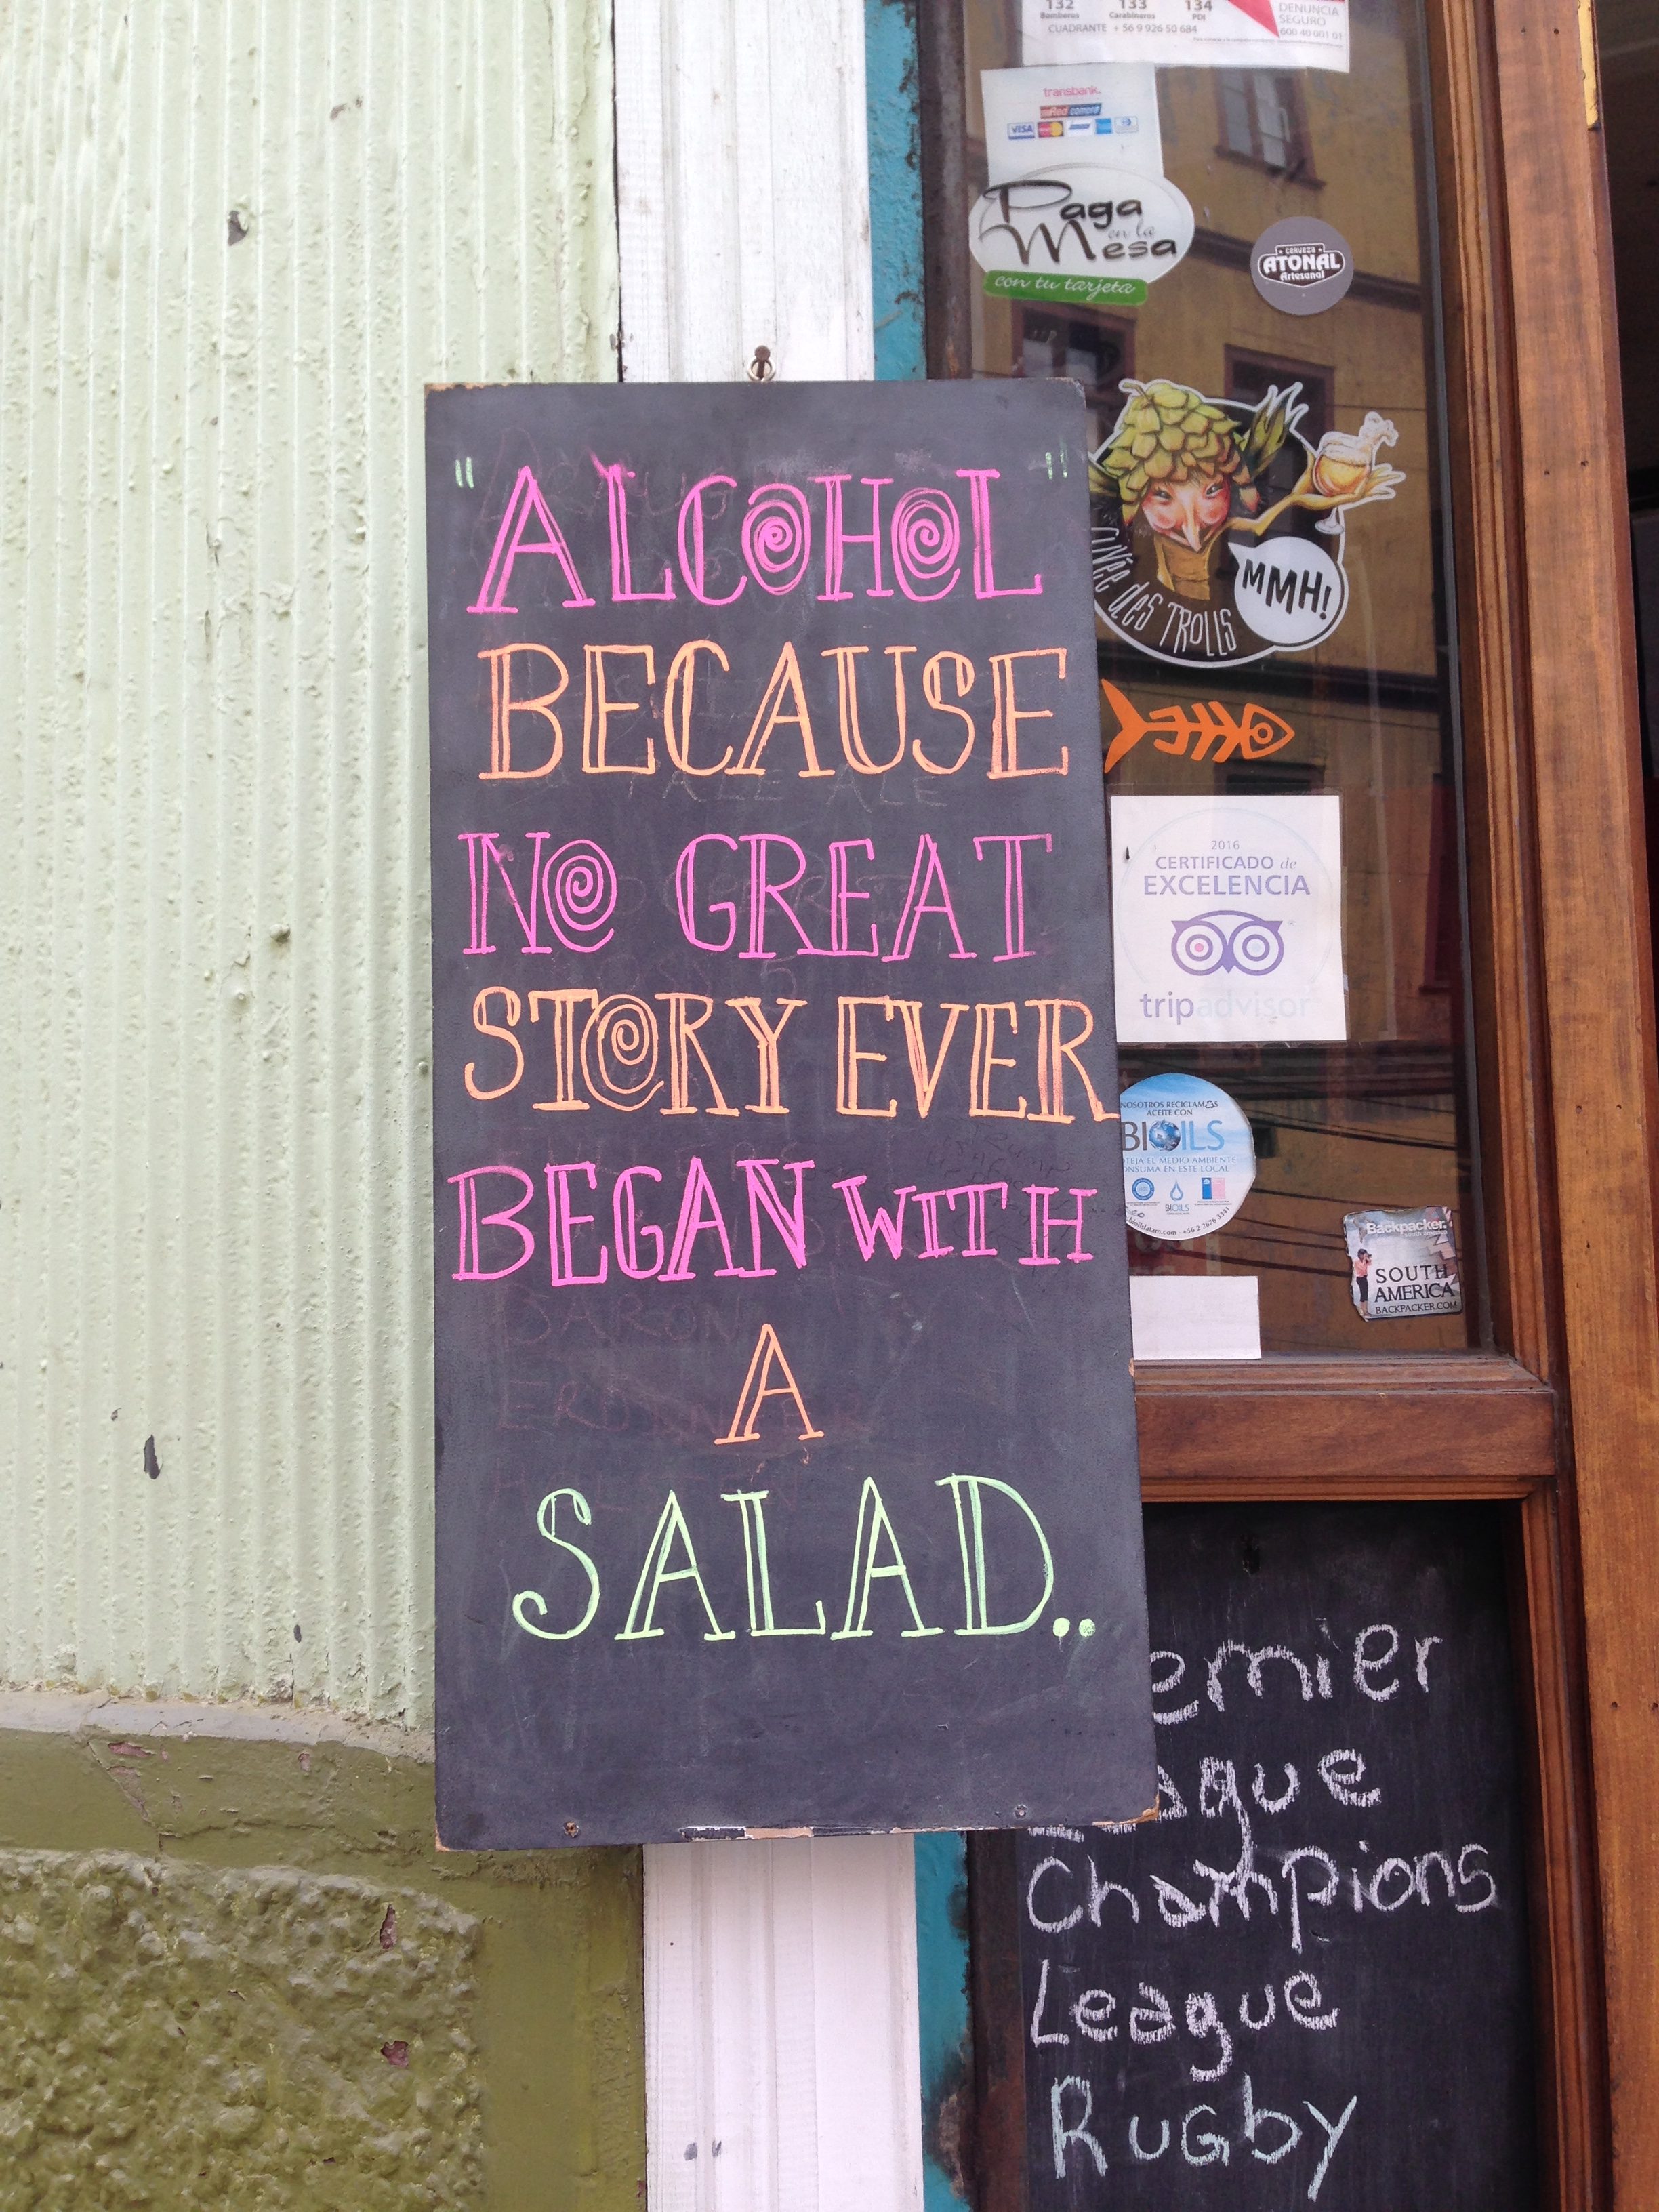 "ALCOHOL"
BECAUSE
NO GREAT
STORY EVER
BEGAN WITH
A
SALAD..
132 133 134
Bomberos Carabineros PDI
CUADRANTE + 56 9 926 50 684
DENUNCIA
SEGURO
600 40 001 01
transbank.
RedCompra
VISA
Paga
en la
Mesa
con tu tarjeta
CERVEZA
ATONAL
Artesanal
des TROLLS
MMH!
2016
CERTIFICADO de
EXCELENCIA
tripadvisor
NOSOTROS RECICLAMOS
ACEITE CON
BIOILS
EL MEDIO AMBIENTE
EN ESTE LOCAL
BIOILS
Backpacker.
SOUTH
AMERICA
BACKPACKER.COM
emier
ague
Champions
League
Rugby